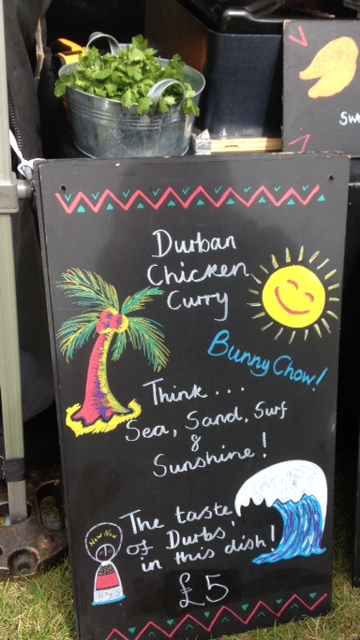 Durban
Chicken
Curry
Bunny Chow!
Think...
Sea, Sand, Surf
&
Sunshine!
The taste
of Durbs'
in this dish!
£5
Now Now